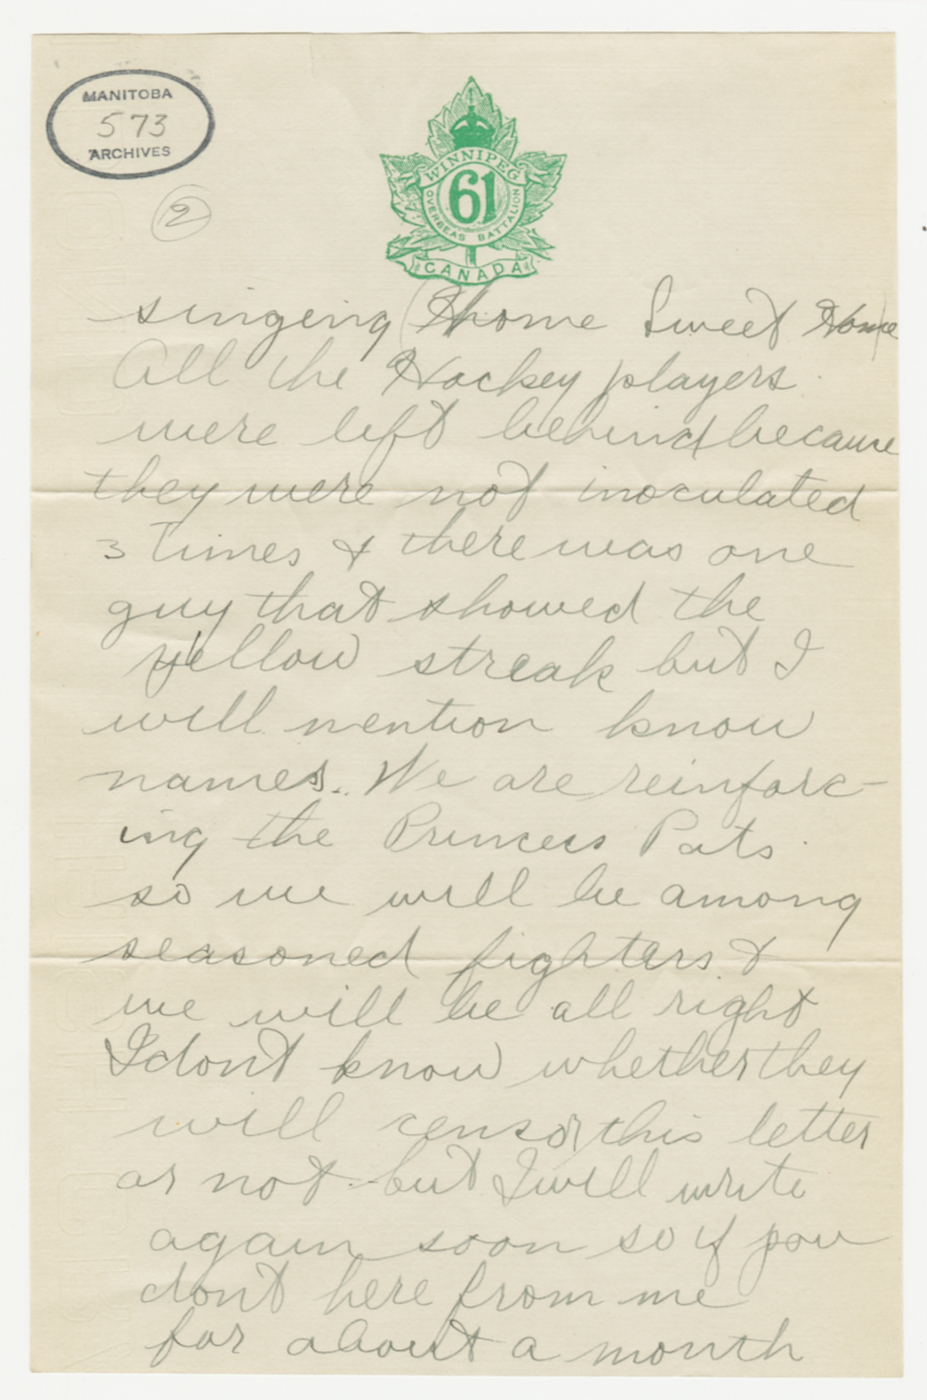 MANITOBA
573
ARCHIVES
2
WINNIPEG
61
OVERSEAS BATTALION
CANADA
singing (Home Sweet Home)
All the Hockey players
were left behind because
they were not inoculated
3 Times & there was one
guy that showed the
yellow streak but I
will mention know
names. We are reinforc-
ing the Princess Pats
so we will be among
seasoned fighters &
we will be all right
I dont know whether they
will censor this letter
or not but I will write
again soon so if you
dont here from me
for about a month